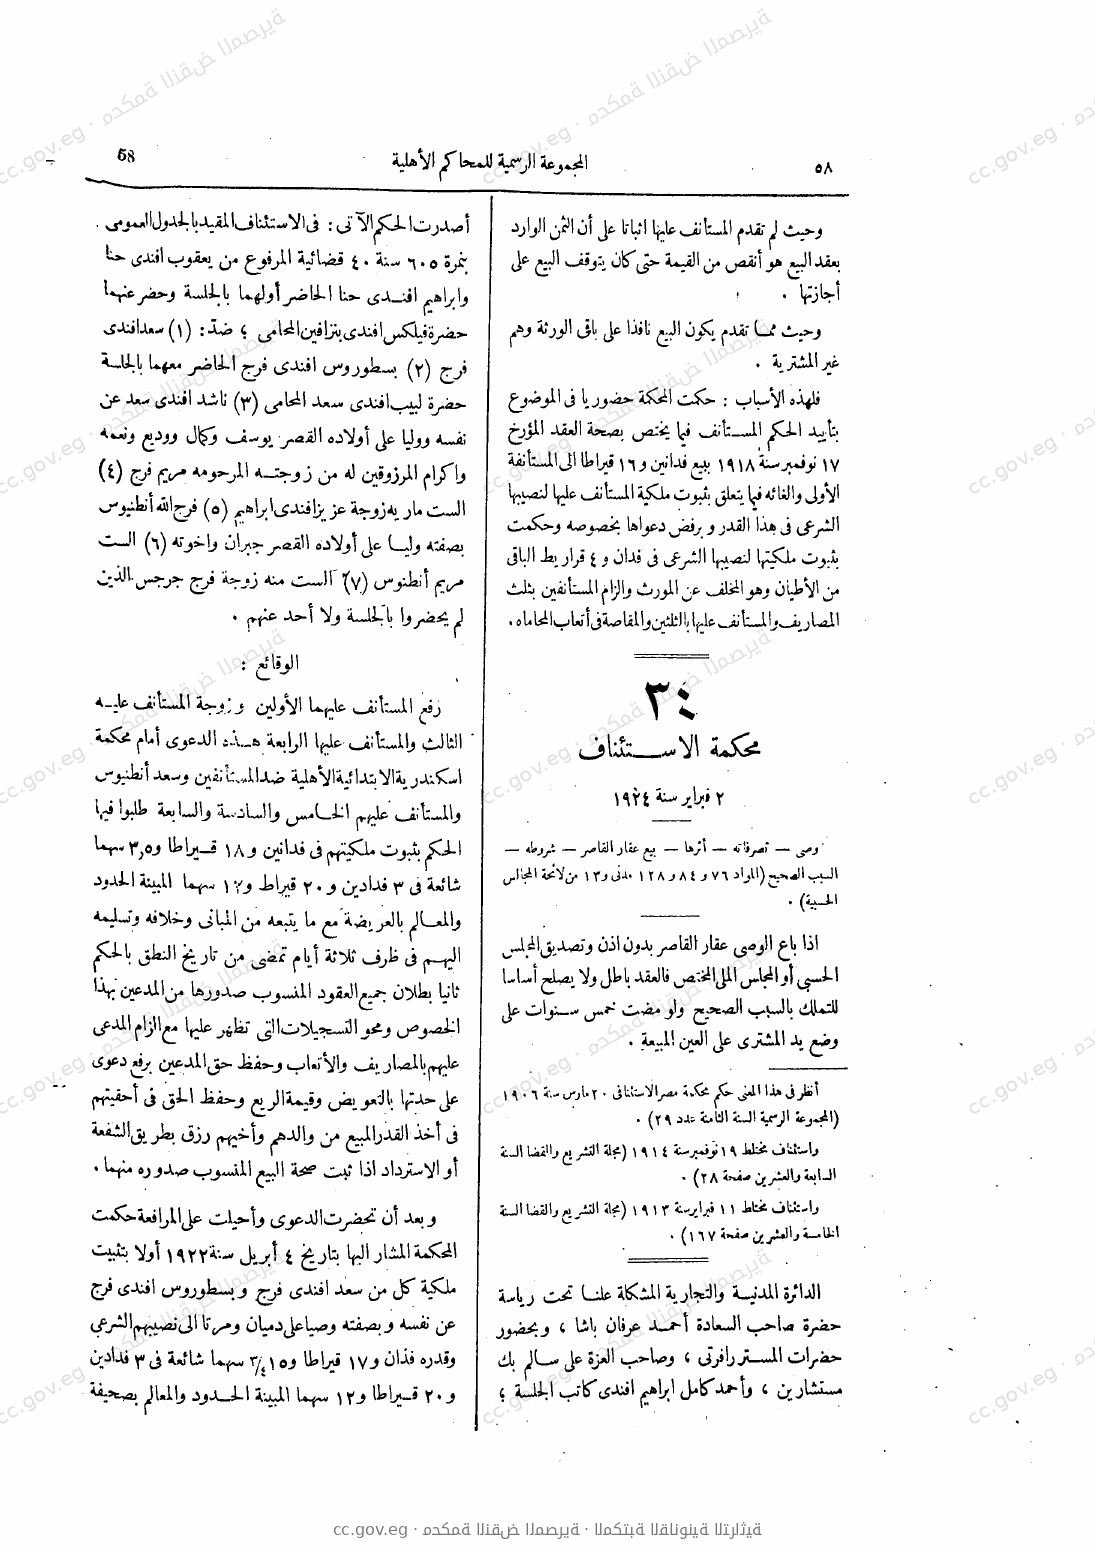 ٥٨
المجموعة الرسمية للمحاكم الأهلية
58
وحيث لم تقدم المستأنف عليها اثباتا على أن الثمن الوارد
بعقد البيع هو أنقص من القيمة حتى كان يتوقف البيع على
أجازتها .
وحيث مما تقدم يكون البيع نافذا على باقى الورثة وهم
غير المشترية .
فلهذه الأسباب : حكمت المحكمة حضوريا فى الموضوع
بتأييد الحكم المستأنف فيما يختص بصحة العقد المؤرخ
١٧ نوفمبر سنة ١٩١٨ ببيع فدانين و ١٦ قيراطا الى المستأنفة
الأولى والغائه فيما يتعلق بثبوت ملكية المستأنف عليها لنصيبها
الشرعى فى هذا القدر و برفض دعواها بخصوصه وحكمت
بثبوت ملكيتها لنصيبها الشرعى فى فدان و ٤ قراريط الباقى
من الأطيان وهو المخلف عن المورث والزام المستأنفين بثلث
المصاريف والمستأنف عليها بالثلثين والمقاصة فى أتعاب المحاماه .
٣٠
محكمة الاستئناف
٢ فبراير سنة ١٩٢٤
وصى — تصرفاته — أثرها — بيع عقار القاصر — شروطه —
السبب الصحيح (المواد ٧٦ و ٨٤ و ١٢٨ مدنى و ١٣ من لائحة المجالس
الحسبية) .
اذا باع الوصى عقار القاصر بدون اذن وتصديق المجلس
الحسبى أو المجلس الملى المختص فالعقد باطل ولا يصلح أساسا
للتملك بالسبب الصحيح ولو مضت خمس سنوات على
وضع يد المشترى على العين المبيعة .
أنظر فى هذا المعنى حكم محكمة مصر الاستئنافى ٢٠ مارس سنة ١٩٠٦
(المجموعة الرسمية السنة الثامنة عدد ٢٩) .
واستئناف مختلط ١٩ نوفمبر سنة ١٩١٤ (مجلة التشريع والقضا السنة
السابعة والعشرين صفحة ٢٨) .
واستئناف مختلط ١١ فبراير سنة ١٩١٣ (مجلة التشريع والقضا السنة
الخامسة والعشرين صفحة ١٦٧) .
الدائرة المدنية والتجارية المشكلة علنا تحت رياسة
حضرة صاحب السعادة أحمد عرفان باشا ، وبحضور
حضرات المستر رافرتى ، وصاحب العزة على سالم بك
مستشارين ، وأحمد كامل ابراهيم افندى كاتب الجلسة ؛
أصدرت الحكم الآتى : فى الاستئناف المقيد بالجدول العمومى
بنمرة ٦٠٥ سنة ٤٠ قضائية المرفوع من يعقوب افندى حنا
وابراهيم افندى حنا الحاضر أولهما بالجلسة وحضر عنهما
حضرة فيلكس افندى يتزافين المحامى ؛ ضد : (١) سعد افندى
فرج (٢) بسطوروس افندى فرج الحاضر معهما بالجلسة
حضرة لبيب افندى سعد المحامى (٣) ناشد افندى سعد عن
نفسه ووليا على أولاده القصر يوسف وكمال ووديع ونعمه
واكرام المرزوقين له من زوجته المرحومه مريم فرج (٤)
الست ماريه زوجة عزيز افندى ابراهيم (٥) فرج الله أنطنيوس
بصفته وليا على أولاده القصر جبران واخوته (٦) الست
مريم أنطنوس (٧) الست منه زوجة فرج جرجس الذين
لم يحضروا بالجلسة ولا أحد عنهم .
الوقائع :
رفع المستأنف عليهما الأولين وزوجة المستأنف عليه
الثالث والمستأنف عليها الرابعة هذه الدعوى أمام محكمة
اسكندرية الابتدائية الأهلية ضد المستأنفين وسعد أنطنيوس
والمستأنف عليهم الخامس والسادسة والسابعة طلبوا فيها
الحكم بثبوت ملكيتهم فى فدانين و ١٨ قيراطا و ٣,٥ سهما
شائعة فى ٣ فدادين و ٢٠ قيراط و ١٢ سهما المبينة الحدود
والمعالم بالعريضة مع ما يتبعه من المبانى وخلافه وتسليمه
اليهم فى ظرف ثلاثة أيام تمضى من تاريخ النطق بالحكم
ثانيا بطلان جميع العقود المنسوب صدورها من المدعين بهذا
الخصوص ومحو التسجيلات التى تظهر عليها مع الزام المدعى
عليهم بالمصاريف والأتعاب وحفظ حق المدعين برفع دعوى
على حدتها بالتعويض وقيمة الريع وحفظ الحق فى أحقيتهم
فى أخذ القدر المبيع من والدهم وأخيهم رزق بطريق الشفعة
أو الاسترداد اذا ثبت صحة البيع المنسوب صدوره منهما .
وبعد أن تحضرت الدعوى وأحيلت على المرافعة حكمت
المحكمة المشار اليها بتاريخ ٤ أبريل سنة ١٩٢٢ أولا بتثبيت
ملكية كل من سعد افندى فرج وبسطوروس افندى فرج
عن نفسه وبصفته وصيا على دميان ومرتا الى نصيبهم الشرعى
وقدره فذان و ١٧ قيراطا و ١٥ ٣/٤ سهما شائعة فى ٣ فدادين
و ٢٠ قيراطا و ١٢ سهما المبينة الحدود والمعالم بصحيفة
cc.gov.eg · محكمة النقض المصرية · المكتبة القانونية التراثية